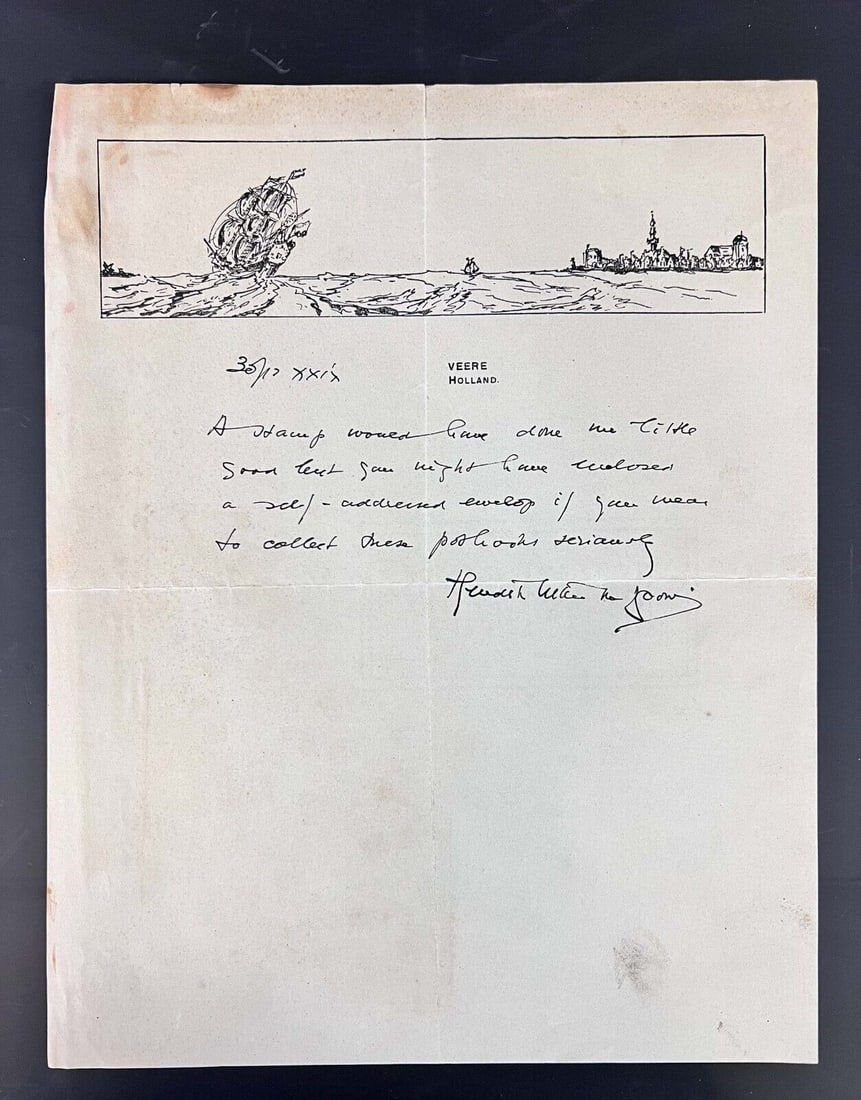 VEERE
HOLLAND.
30/12 XXIX
A stamp would have done me little
good but you might have enclosed
a self-addressed envelop if you mean
to collect these pothooks seriously
Hendrik Willem van Loon